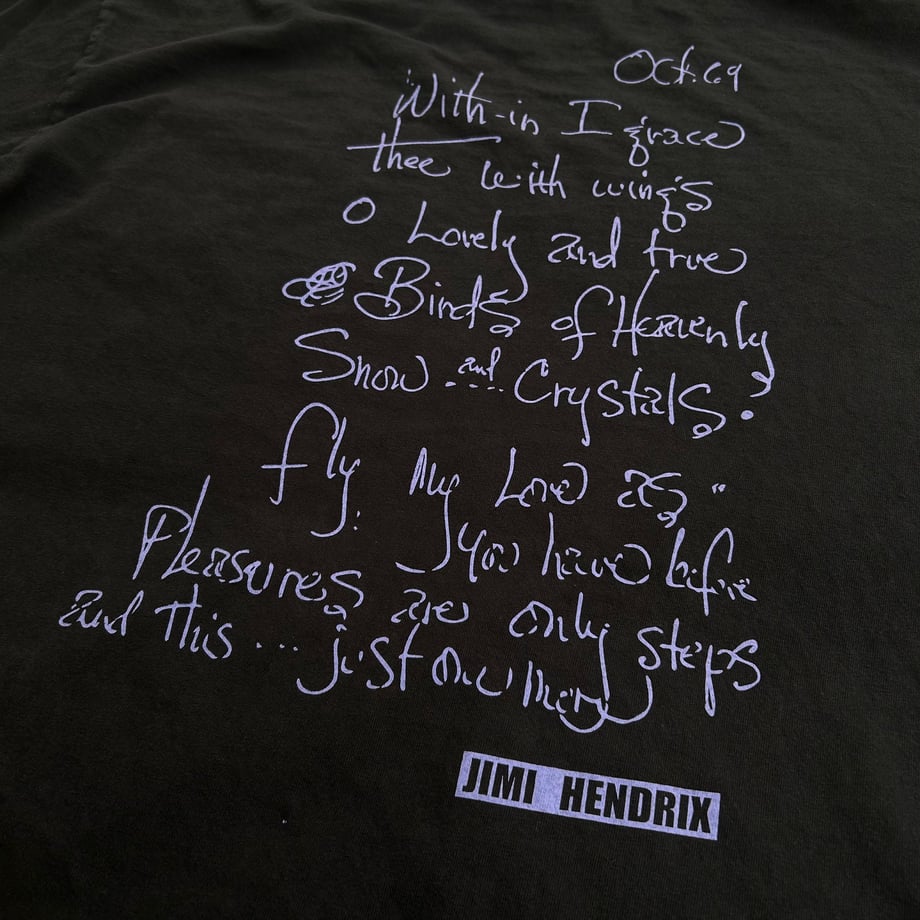 Oct. 69
With-in I grace
thee with wings
O Lovely and true
Birds of Heavenly
Snow and Crystals.
fly my Love as
you have before
Pleasures are only steps
and this ... just one more
JIMI HENDRIX